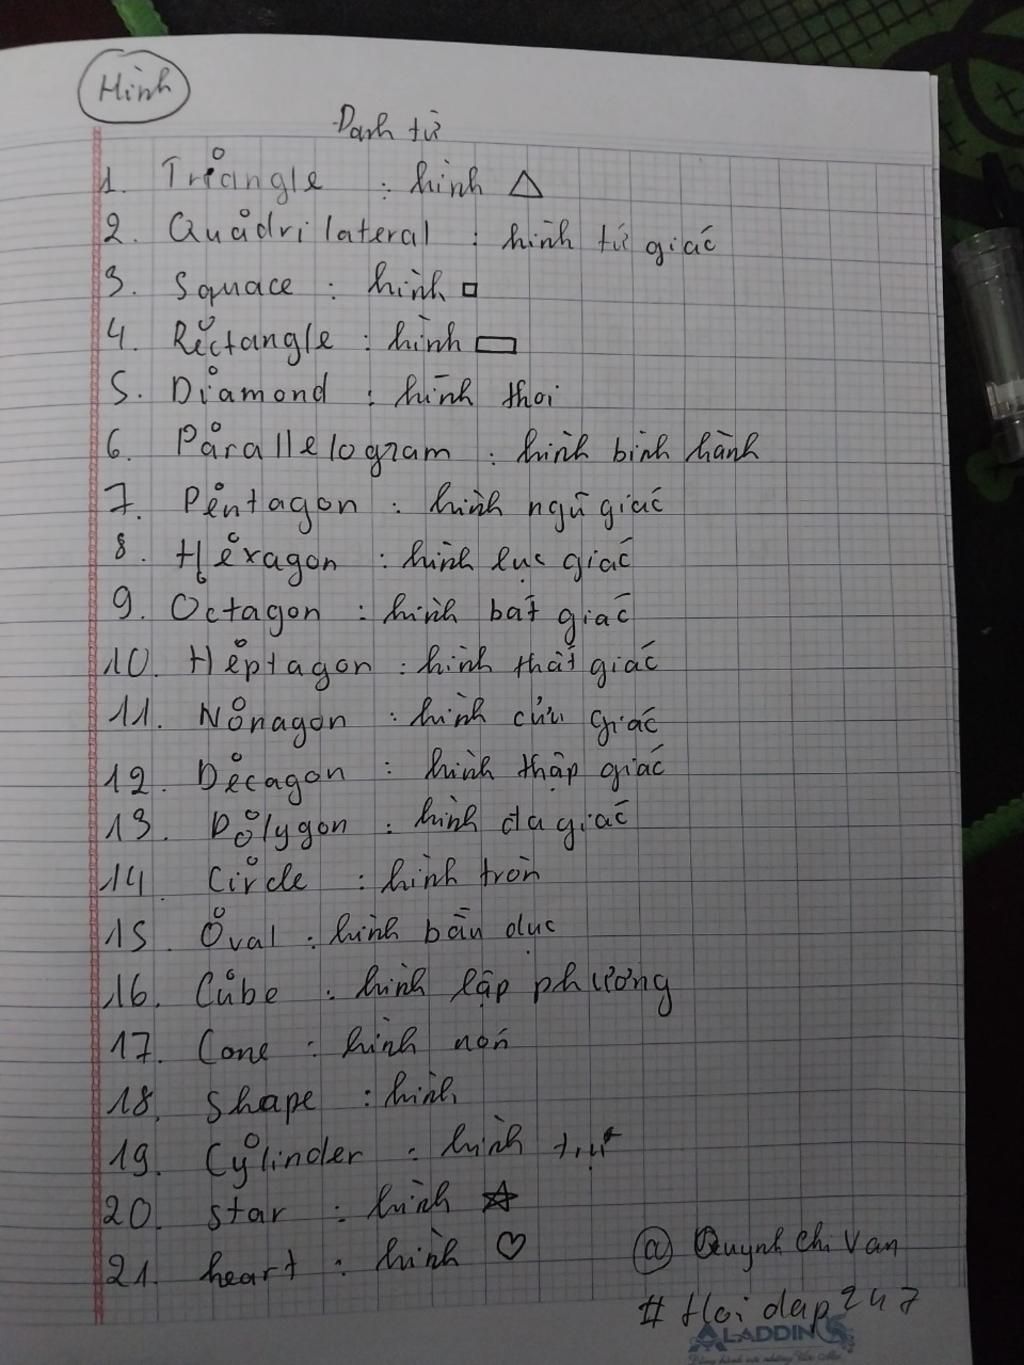 Hình
Danh từ
1. Triangle : hình △
2. Quadrilateral : hình tứ giác
3. Squace : hình □
4. Rectangle : hình ▭
5. Diamond : hình thoi
6. Parallelogram : hình bình hành
7. Pentagon : hình ngũ giác
8. Hexagon : hình lục giác
9. Octagon : hình bát giác
10. Heptagon : hình thất giác
11. Nonagon : hình cửu giác
12. Decagon : hình thập giác
13. Polygon : hình đa giác
14. Circle : hình tròn
15. Oval : hình bầu dục
16. Cube : hình lập phương
17. Cone : hình nón
18. Shape : hình
19. Cylinder : hình trụ
20. star : hình ☆
21. heart : hình ♡
@ Quynh Chi Van
# Hoi dap 247
ALADDIN